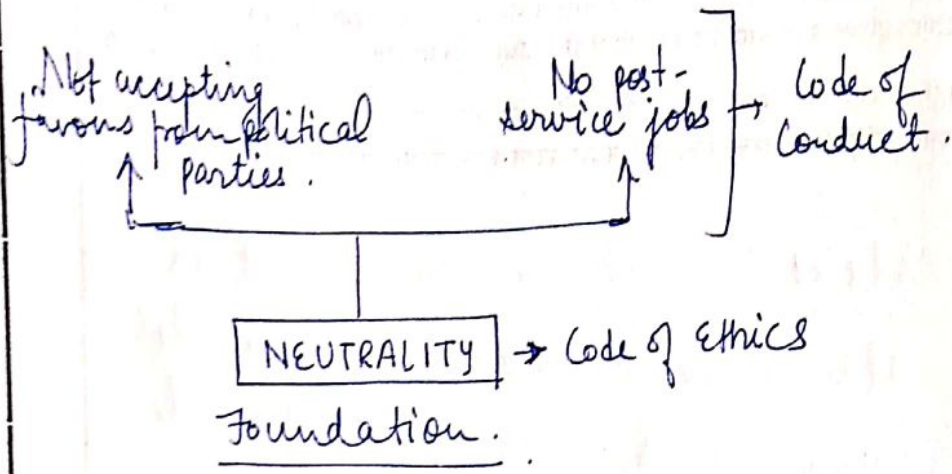 Not accepting
favours from political
parties.
No post-
service jobs
Code of
Conduct.
NEUTRALITY → Code of Ethics
Foundation.